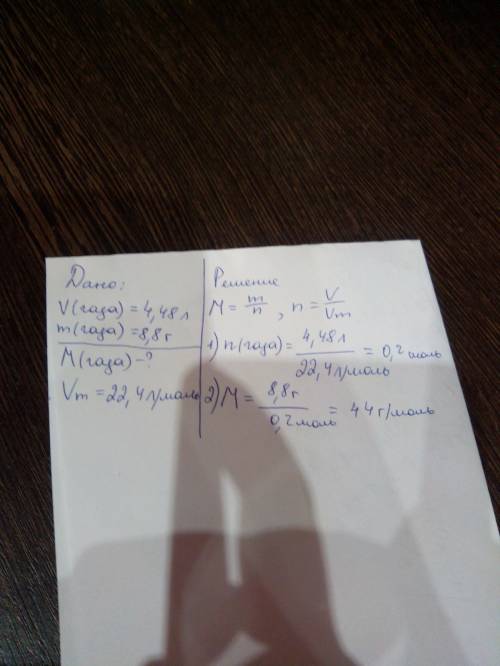 Дано:
V(газа) = 4,48 л
m(газа) = 8,8 г
M(газа) - ?
Vm = 22,4 л/моль
Решение
M = m/n , n = V/Vm
1) n(газа) = 4,48 л / 22,4 л/моль = 0,2 моль
2) M = 8,8 г / 0,2 моль = 44 г/моль